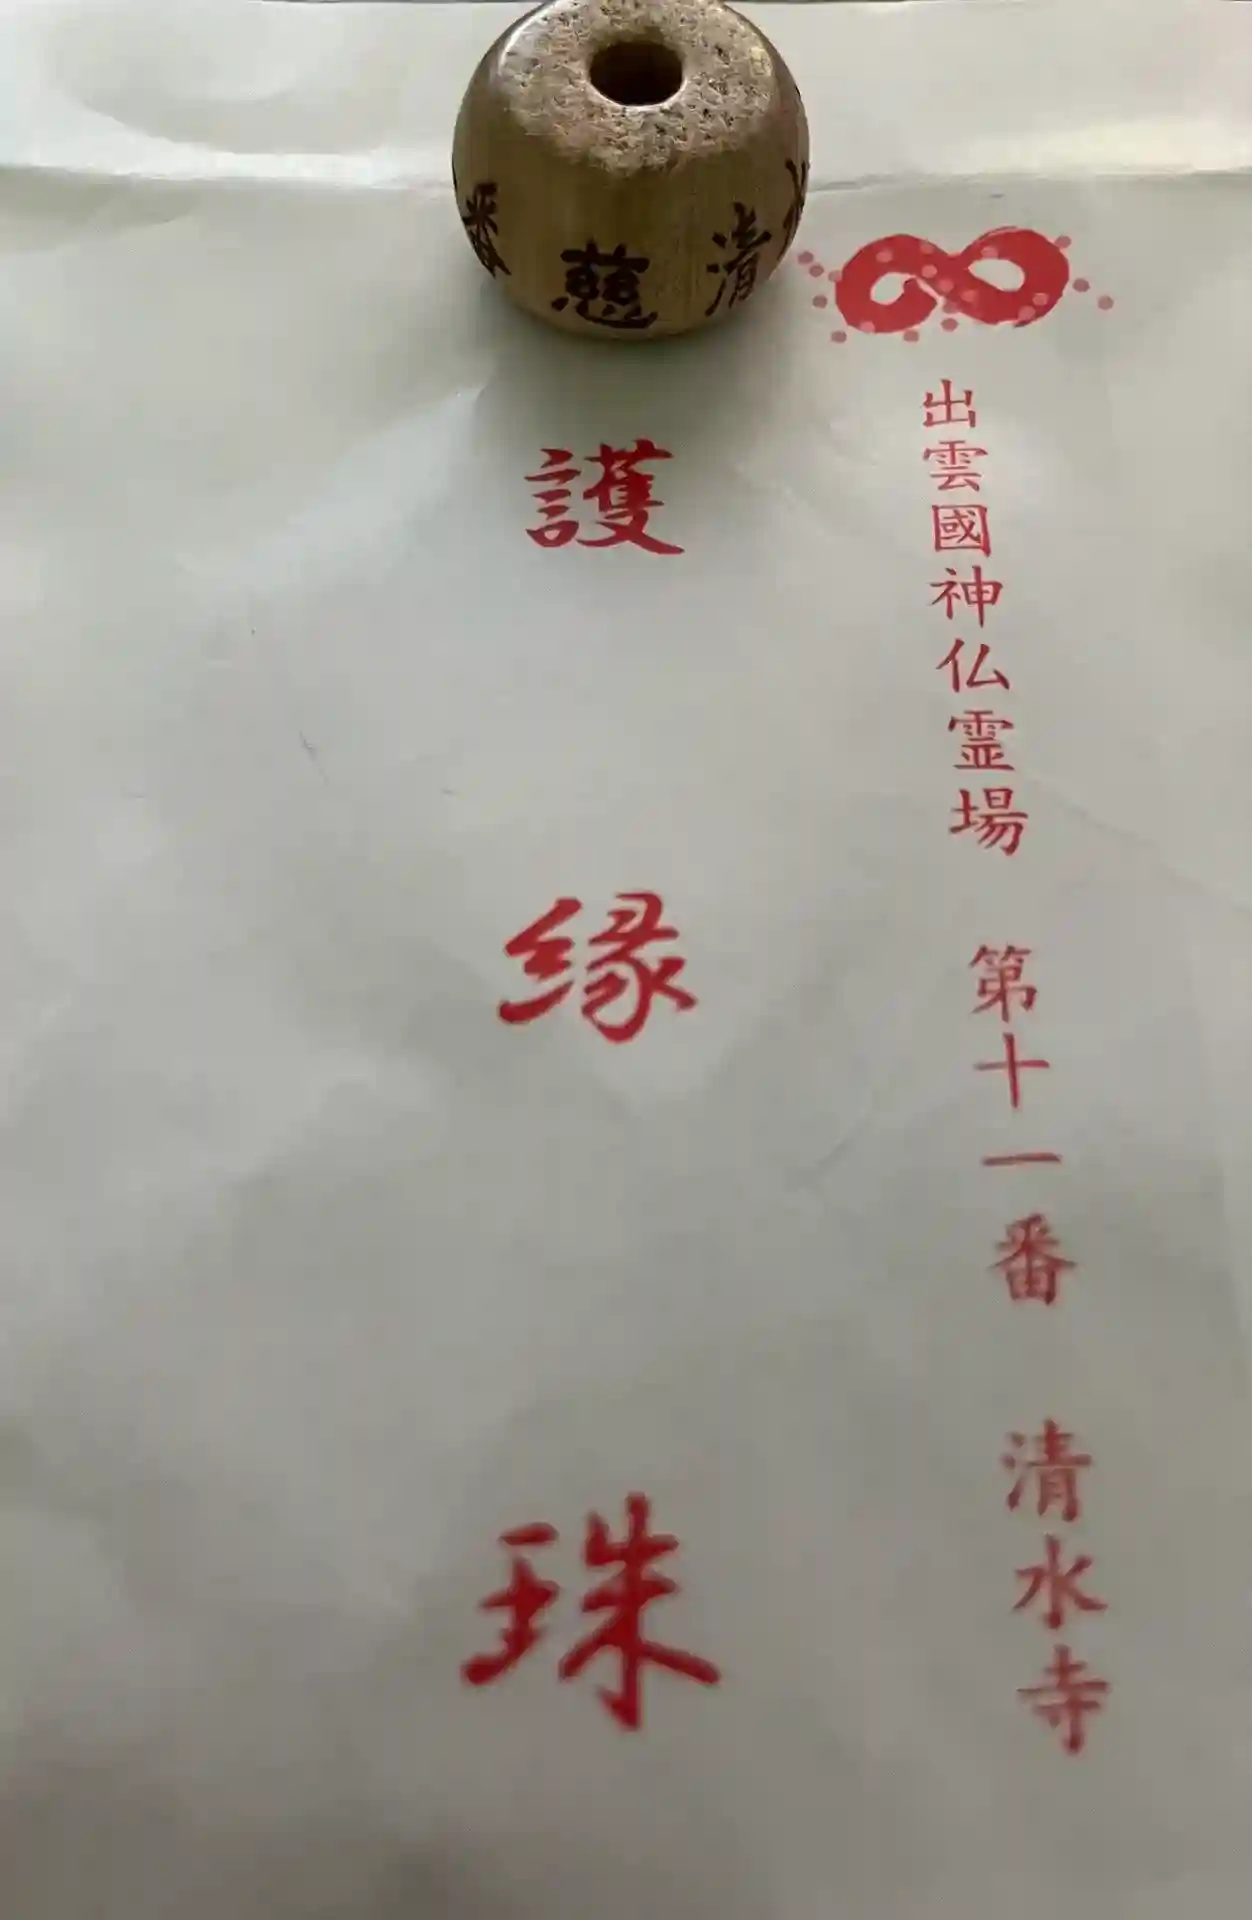 出雲國神仏霊場 第十一番 清水寺
護縁珠
慈
清